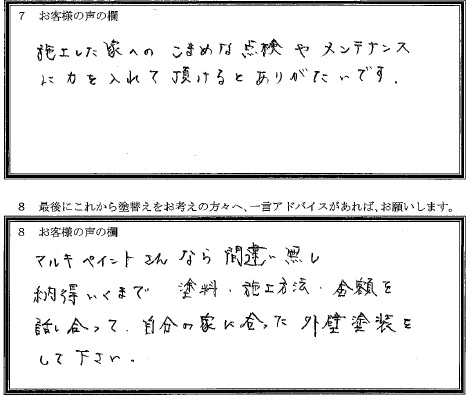 7 お客様の声の欄
施工した家へのこまめな点検やメンテナンス
に力を入れて頂けるとありがたいです.
8 最後にこれから塗替えをお考えの方々へ、一言アドバイスがあれば、お願いします。
8 お客様の声の欄
マルキペイントさんなら間違い無し
納得いくまで 塗料・施工方法・金額を
話し合って、自分の家に合った外壁塗装を
して下さい.